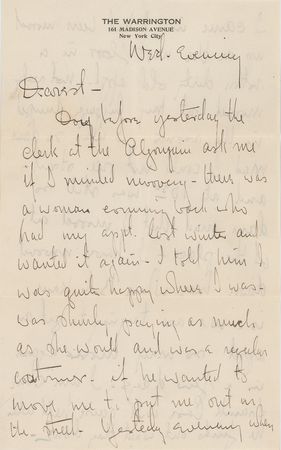 THE WARRINGTON
161 MADISON AVENUE
New York City
Wed. Evening
Dearest -
Day before yesterday the
clerk at the Algonquin ask me
if I minded moving - there was
a woman coming back who
had my appt. last winter and
wanted it again - I told him I
was quite happy where I was -
was surely paying as much
as she would and was a regular
customer - if he wanted to
move me to put me out in
the street - Yesterday evening when